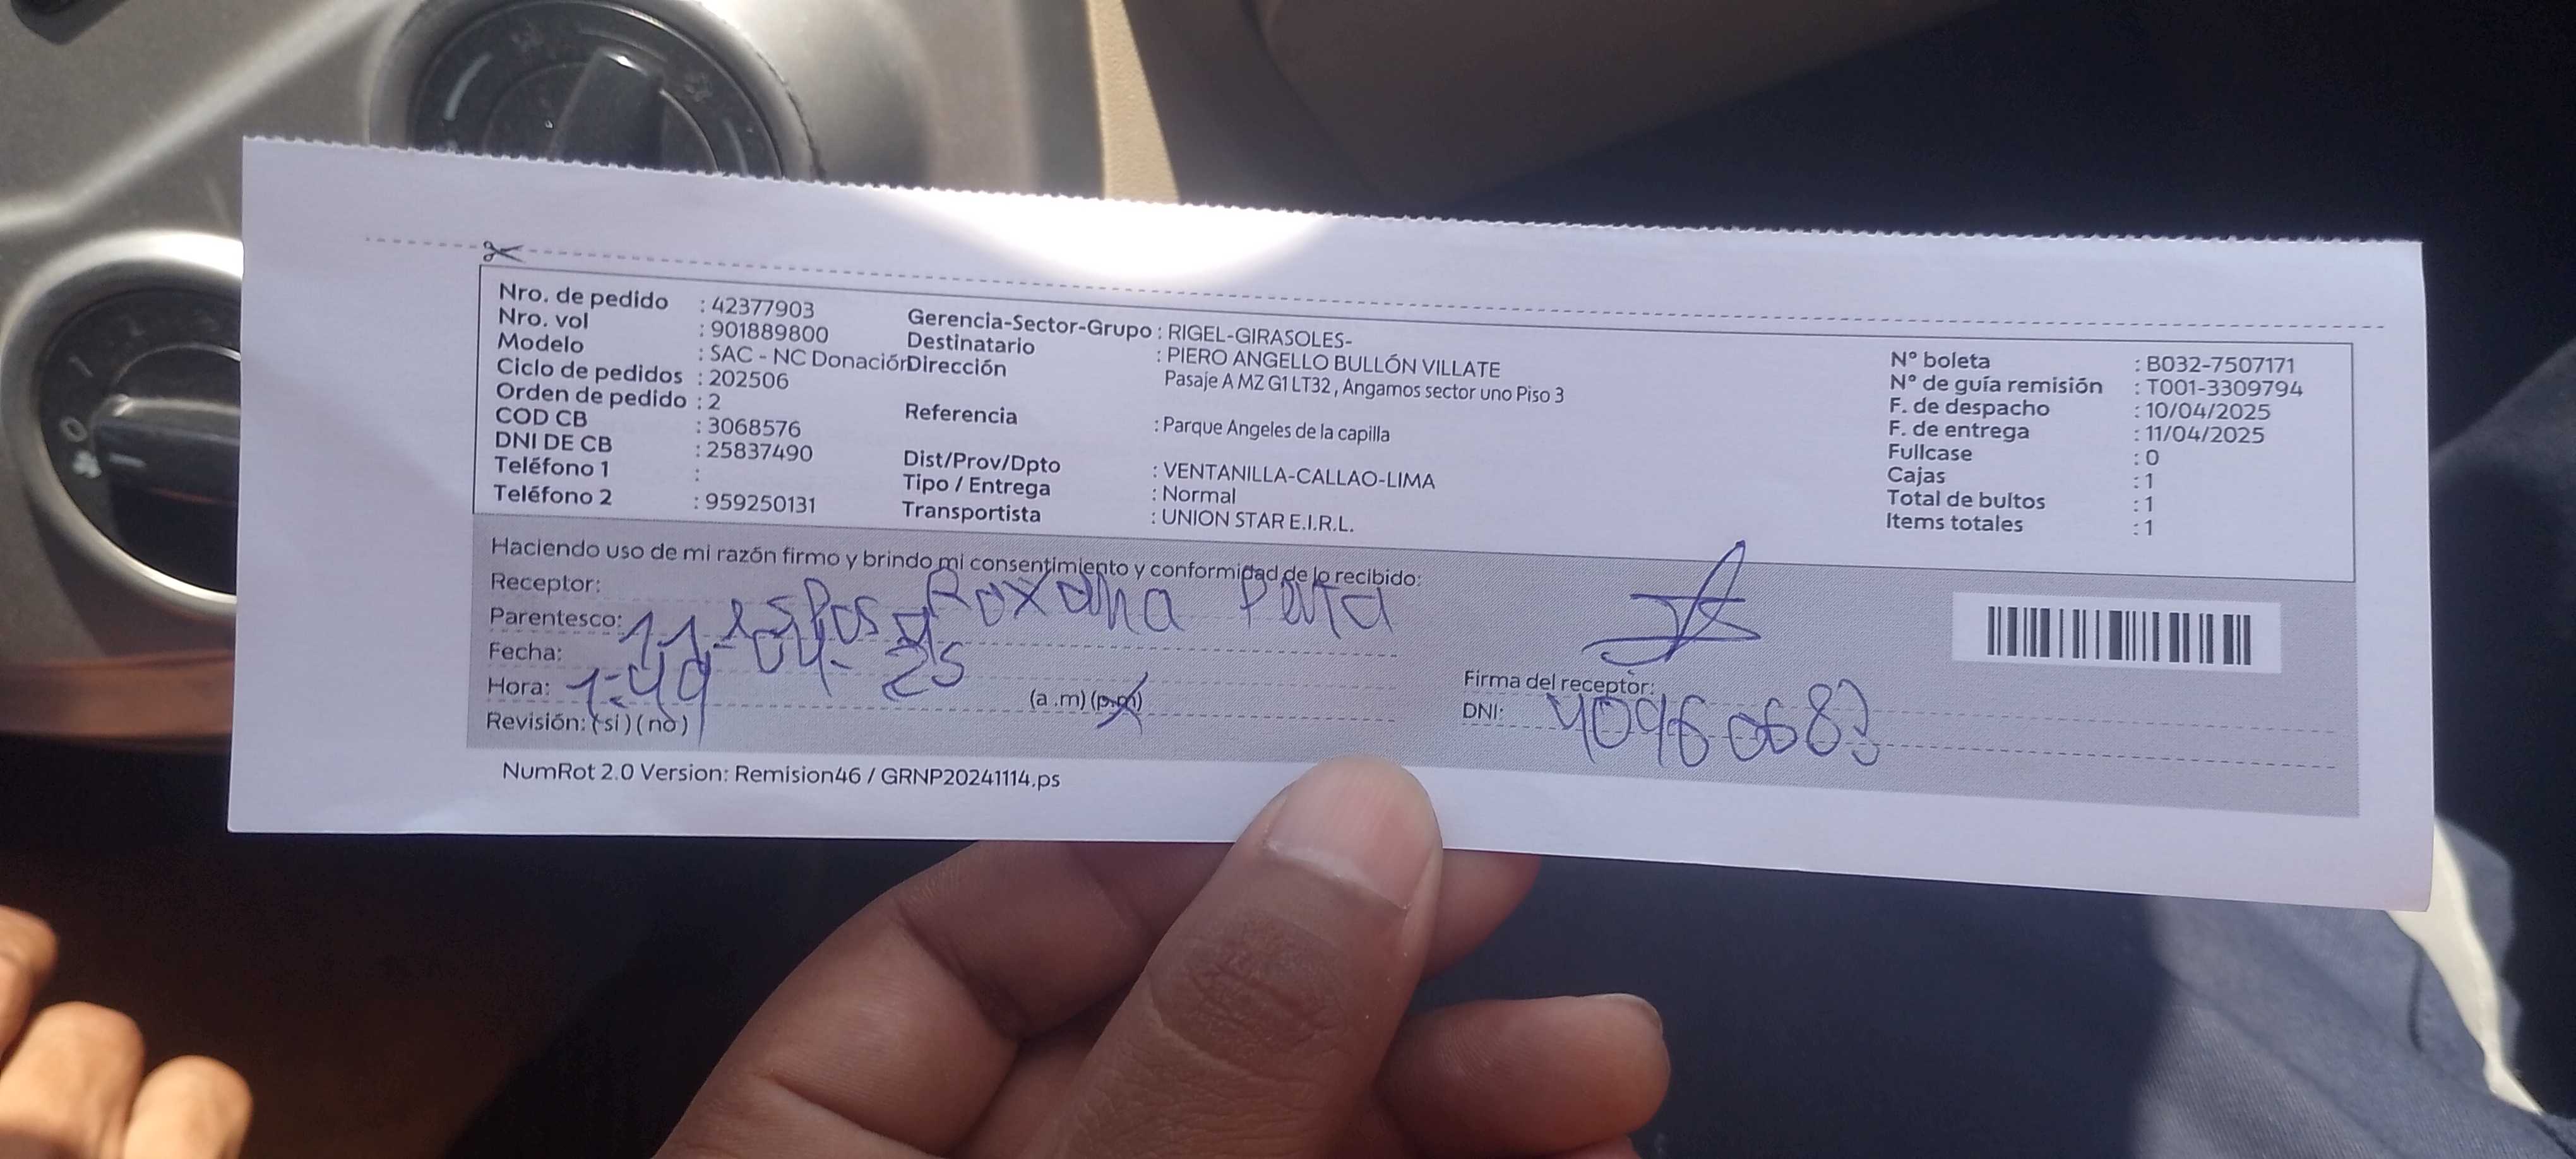 Nro. de pedido : 42377903
Nro. vol : 901889800
Modelo : SAC - NC Donación
Ciclo de pedidos : 202506
Orden de pedido : 2
COD CB : 3068576
DNI DE CB : 25837490
Teléfono 1 :
Teléfono 2 : 959250131
Gerencia-Sector-Grupo : RIGEL-GIRASOLES-
Destinatario : PIERO ANGELLO BULLÓN VILLATE
Dirección Pasaje A MZ G1 LT32 , Angamos sector uno Piso 3
Referencia : Parque Angeles de la capilla
Dist/Prov/Dpto : VENTANILLA-CALLAO-LIMA
Tipo / Entrega : Normal
Transportista : UNION STAR E.I.R.L.
N° boleta : B032-7507171
N° de guía remisión : T001-3309794
F. de despacho : 10/04/2025
F. de entrega : 11/04/2025
Fullcase : 0
Cajas : 1
Total de bultos : 1
Items totales : 1
Haciendo uso de mi razón firmo y brindo mi consentimiento y conformidad de lo recibido:
Receptor: Roxana
Parentesco: esposa
Fecha: 11-04-25
Hora: 1:49 (a .m) (p.m)
Revisión: ( si ) ( no )
Firma del receptor:
DNI: 40960683
NumRot 2.0 Version: Remision46 / GRNP20241114.ps